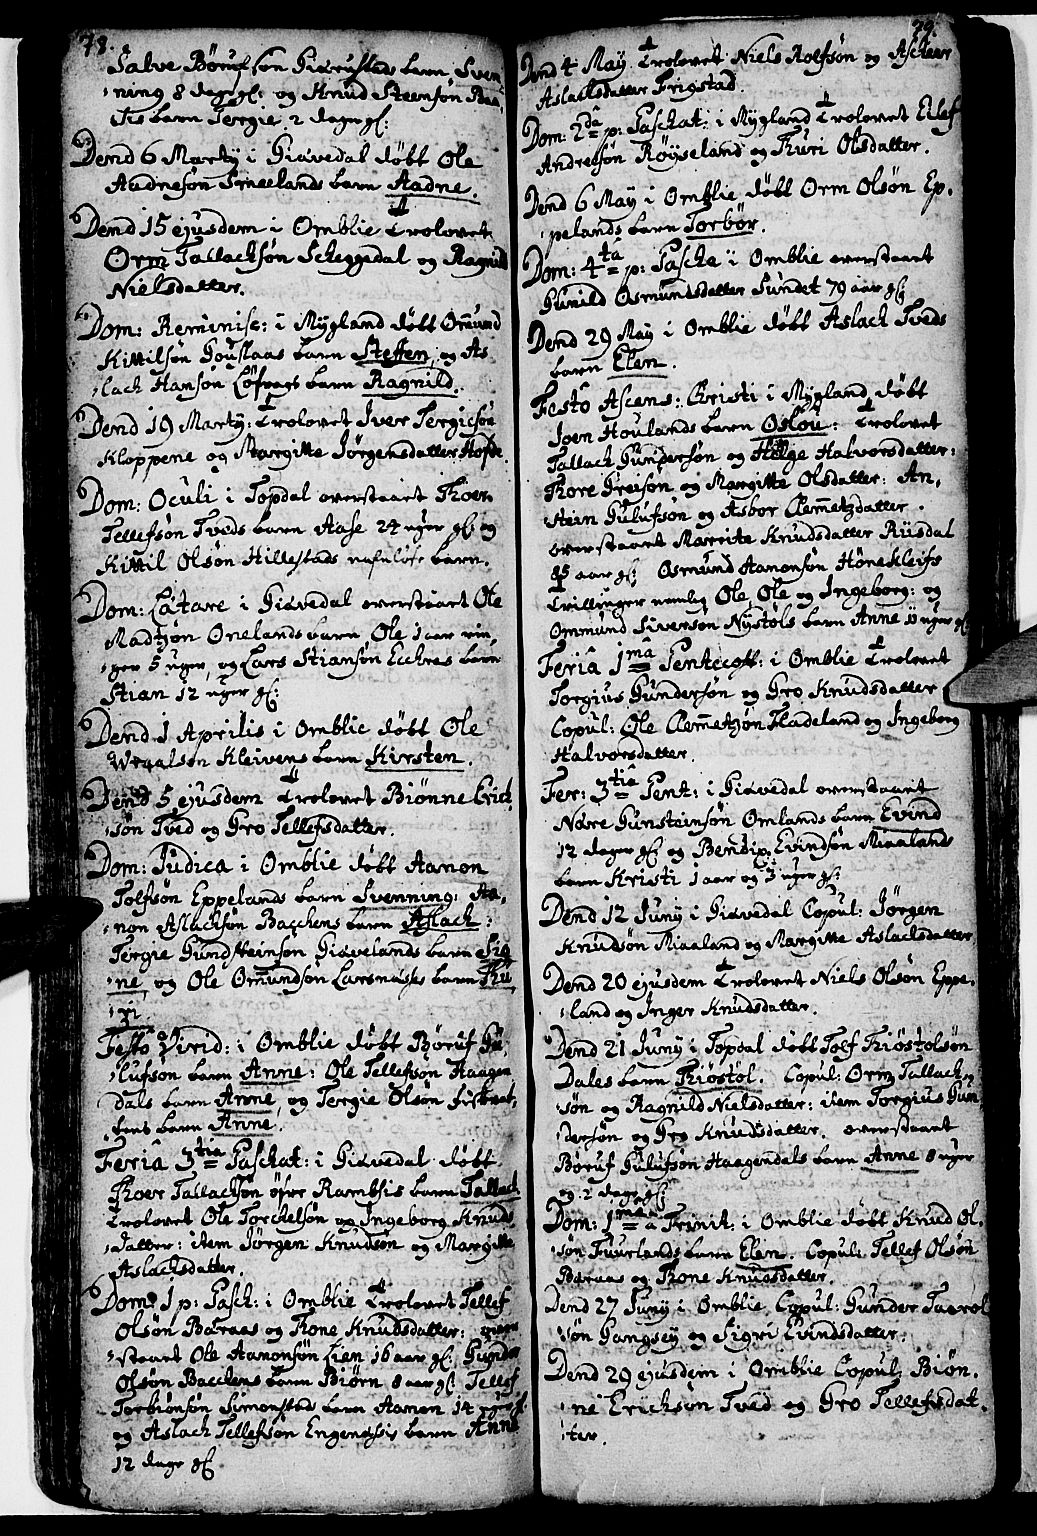 78.
Salve Børufsøn Giærustads barn Sven
ning 8 dage gl: og Knud Steensøn Baa
Tis barn Tergie 2 dage gl:
Dend 6 Marty i Giævedal døbt Ole
Audnesøn Smeelands barn Aadne.
Dend 15 ejusdem i Omblie Trolovet
Orm Tallachsøn Scheggedal og Ragnild
Nielsdatter.
Dom: Reminisc: i Mygland døbt Omund
Kittilsøn Gouslaas barn Steffen, og As
lach Hansøn Løfvags barn Ragnild.
Dend 19 Marty: Trolovet Iver Tergiesøn
Kloppene og Margitte Jørgensdatter Hofde
Dom: Oculi i Topdal overstaaet Thoer
Tellefsøn Tveds barn Aase 24 uger gl: og
Kittil Olsøn Hillestads nafnløse barn.
Dom: Lætare i Giævedal overstaaet Ole
Madtzøn Onelands barn Ole 1 aar min,
ger 5 uger, og Lars Stiansøn Eechres barn
Stian 12 uger gl:
Dend 1 Aprilis i Omblie døbt Ole
Wraalsøn Kleivens barn Kirsten.
Dend 5 ejusdem Trolovet Biønne Erich
søn Tved og Gro Tellefsdatter.
Dom: Judica i Omblie døbt Aamon
Tolfsøn Eppelands barn Svenning: Aa,
non Aslachsøn Bacchens barn Aslach:
Tergie Gundsteinsøn Giævelands barn Sig
ne og Ole Omundsøn Larsnæses barn Thu
ri.
Festo Virid: i Omblie døbt Børuf Gu
lufsøn barn Anne: Ole Tellefsøn Haagen
dals barn Anne og Tergie Olsøn fiskvat,
tens barn Anne.
Feria 3tia Paschat: i Giævedal døbt
Thoer Tallachsøn øfre Ramsiis barn Tallach.
Trolovet Ole Torchelsøn og Ingeborg Knuds
datter: item Jørgen Knudsøn og Margitte
Aslachsdatter.
Dom: 1 p: Pasch: i Omblie Trolovet Tellef
Olsøn Baraas og Thone Knudsdatter: over
staaet Ole Aamonsøn Lien 16 aar gl: Gunder
Olsøn Bacchens barn Biørn 8 aar gl: Tellef
Torbiønsøn Simonstad barn Aamon 14 uger gl:
og Aslach Tellefsøn Engenæsis barn Anne
12 dage gl:
79.
Dend 4 May Trolovet Niels Rolfsøn og Aschier
Aslachsdatter Frigstad.
Dom: 2da p: Paschat: i Mygland Trolovet Eilef
Andreesøn Røyseland og Thuri Olsdatter.
Dend 6 May i Omblie døbt Orm Olsøn Ep,
pelands barn Torbør.
Dom: 4ta p: Pascha i Omblie overstaaet
Gunild Osmundsdatter Sundet 79 aar gl:
Dend 29 May i Omblie døbt Aslach Tveds
barn Elen.
Festo Ascens: Christi i Mygland døbt
Joen Houlands barn Oslou: Trolovet
Tallach Gundersøn og Hillge Halvorsdatter:
Thore Greisøn og Margitte Olsdatter: An,
stein Gulufsøn og Asbor Clemetzdatter.
overstaaet Marrite Knudsdatter Riisdal
85 aar gl: Osmund Aamonsøn Hønekleifs
Trillinger nemlig Ole, Ole og Ingeborg: og
Ommund Siversøn Nystøls barn Anne 11 uger gl:
Feria 1ma Pentecost: i Omblie Trolovet
Torgius Gundersøn og Gro Knudsdatter
Copul: Ole Clemetzøn Fladeland og Ingeborg
Halvorsdatter.
Fer: 3tia Pent: i Giævedal overstaaet
Nære Gunsteinsøn Omlands barn Evind
12 dager gl: og Bendix Evindsøn Miaalands
barn Kristi 1 aar og 3 uger gl:
Dend 12 Juny i Giævedal Copul: Jørgen
Knudsøn Miaaland og Margitte Aslachsdatter
Dend 20 ejusdem Trolovet Niels Olsøn Eppe,
land og Inger Knudsdatter.
Dend 21 Juny i Topdal døbt Tolf Thiøstolsøn
Dales barn Thiøstol. Copul: Orm Tallach,
søn og Ragnild Nielsdatter: item Torgius Gun,
dersøn og Gro Knudsdatter. overstaaet
Børuf Gulufsøn Haagendals barn Anne 8 uger
og 2 dage gl:
Dom: 1ma a Trinit: i Omblie døbt Knud Ol,
søn Fuurlands barn Elen. Copul: Tellef Olsøn
Baraas og Thone Knudsdatter.
Dend 27 Juny i Omblie Copul: Gunder Taarol
søn Gangsey og Sigri Evindsdatter.
Dend 29 ejusdem i Omblie Copul: Biøn,
ne Erichsøn Tved og Gro Tellefsdat,
ter.